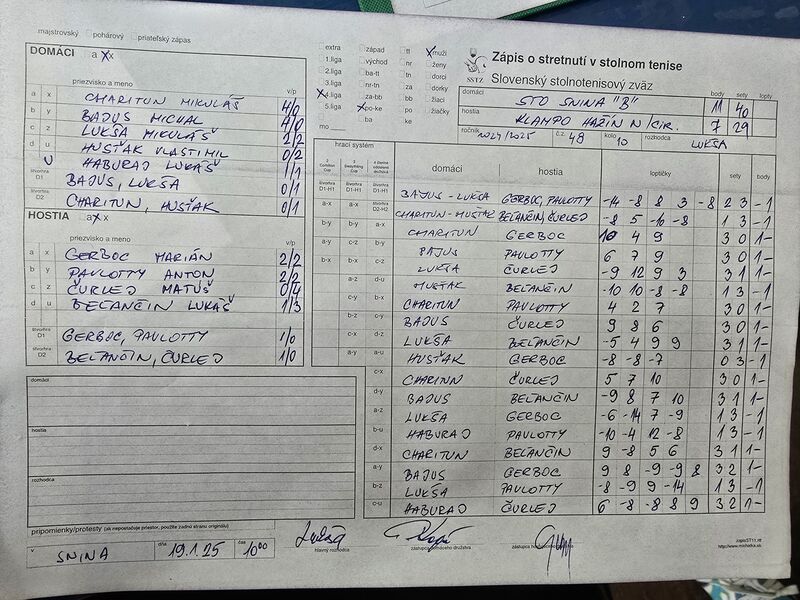 majstrovský pohárový priateľský zápas
DOMÁCI a x
priezvisko a meno v/p
a x CHARITUN MIKULÁŠ 4/0
b y BAJUS MICHAL 4/0
c z LUKŠA MIKULÁŠ 2/2
d u HUSŤAK VLASTIMIL 0/2
U HABURAJ LUKÁŠ 1/1
štvorhra D1 BAJUS, LUKŠA 0/1
štvorhra D2 CHARITUN, HUSŤAK 0/1
HOSTIA a x
priezvisko a meno v/p
a x GERBOC MARIÁN 2/2
b y PAVLOTTY ANTON 2/2
c z ČURLEJ MATÚŠ 0/4
d u BEĽANČIN LUKÁŠ 1/3
štvorhra D1 GERBOC, PAVLOTTY 1/0
štvorhra D2 BEĽANČIN, ČURLEJ 1/0
domáci
hostia
rozhodca
pripomienky/protesty (ak nepostačuje priestor, použite zadnú stranu originálu)
v SNINA dňa 19.1.25 čas 10⁰⁰
hlavný rozhodca
zástupca domáceho družstva
extra západ tt muži
1.liga východ nr ženy
2.liga ba-tt tn dorci
3.liga nr-tn za dorky
4.liga za-bb bb žiaci
5.liga po-ke po žiačky
mo ba ke
SSTZ
Zápis o stretnutí v stolnom tenise
Slovenský stolnotenisový zväz
domáci body sety lopty
STO SNINA "B" 11 40
hostia
KLAMPO HAŽÍN N/CIR. 7 29
ročník 2024/2025 č.z. 48 kolo 10 rozhodca LUKŠA
hrací systém domáci hostia loptičky sety body
BAJUS - LUKŠA GERBOC, PAVLOTTY -14 -8 8 3 -8 2 3 -1
CHARITUN-HUSŤAK BEĽANČIN, ČURLEJ -8 5 -10 -8 1 3 -1
CHARITUN GERBOC 10 4 9 3 0 1-
BAJUS PAVLOTTY 6 7 9 3 0 1-
LUKŠA ČURLEJ -9 12 9 3 3 1 1-
HUSŤAK BEĽANČIN -10 10 -8 -8 1 3 -1
CHARITUN PAVLOTTY 4 2 7 3 0 1-
BAJUS ČURLEJ 9 8 6 3 0 1-
LUKŠA BEĽANČIN -5 4 9 9 3 1 1-
HUSŤAK GERBOC -8 -8 -7 0 3 -1
CHARITUN ČURLEJ 5 7 10 3 0 1-
BAJUS BEĽANČIN -9 8 7 10 3 1 1-
LUKŠA GERBOC -6 -14 7 -9 1 3 -1
HABURAJ PAVLOTTY -10 -4 12 -8 1 3 -1
CHARITUN BEĽANČIN 9 -8 5 6 3 1 1-
BAJUS GERBOC 9 8 -9 -9 8 3 2 1-
LUKŠA PAVLOTTY -8 -9 9 -14 1 3 -1
HABURAJ ČURLEJ 6 -8 -8 8 9 3 2 1-
http://www.michalka.sk